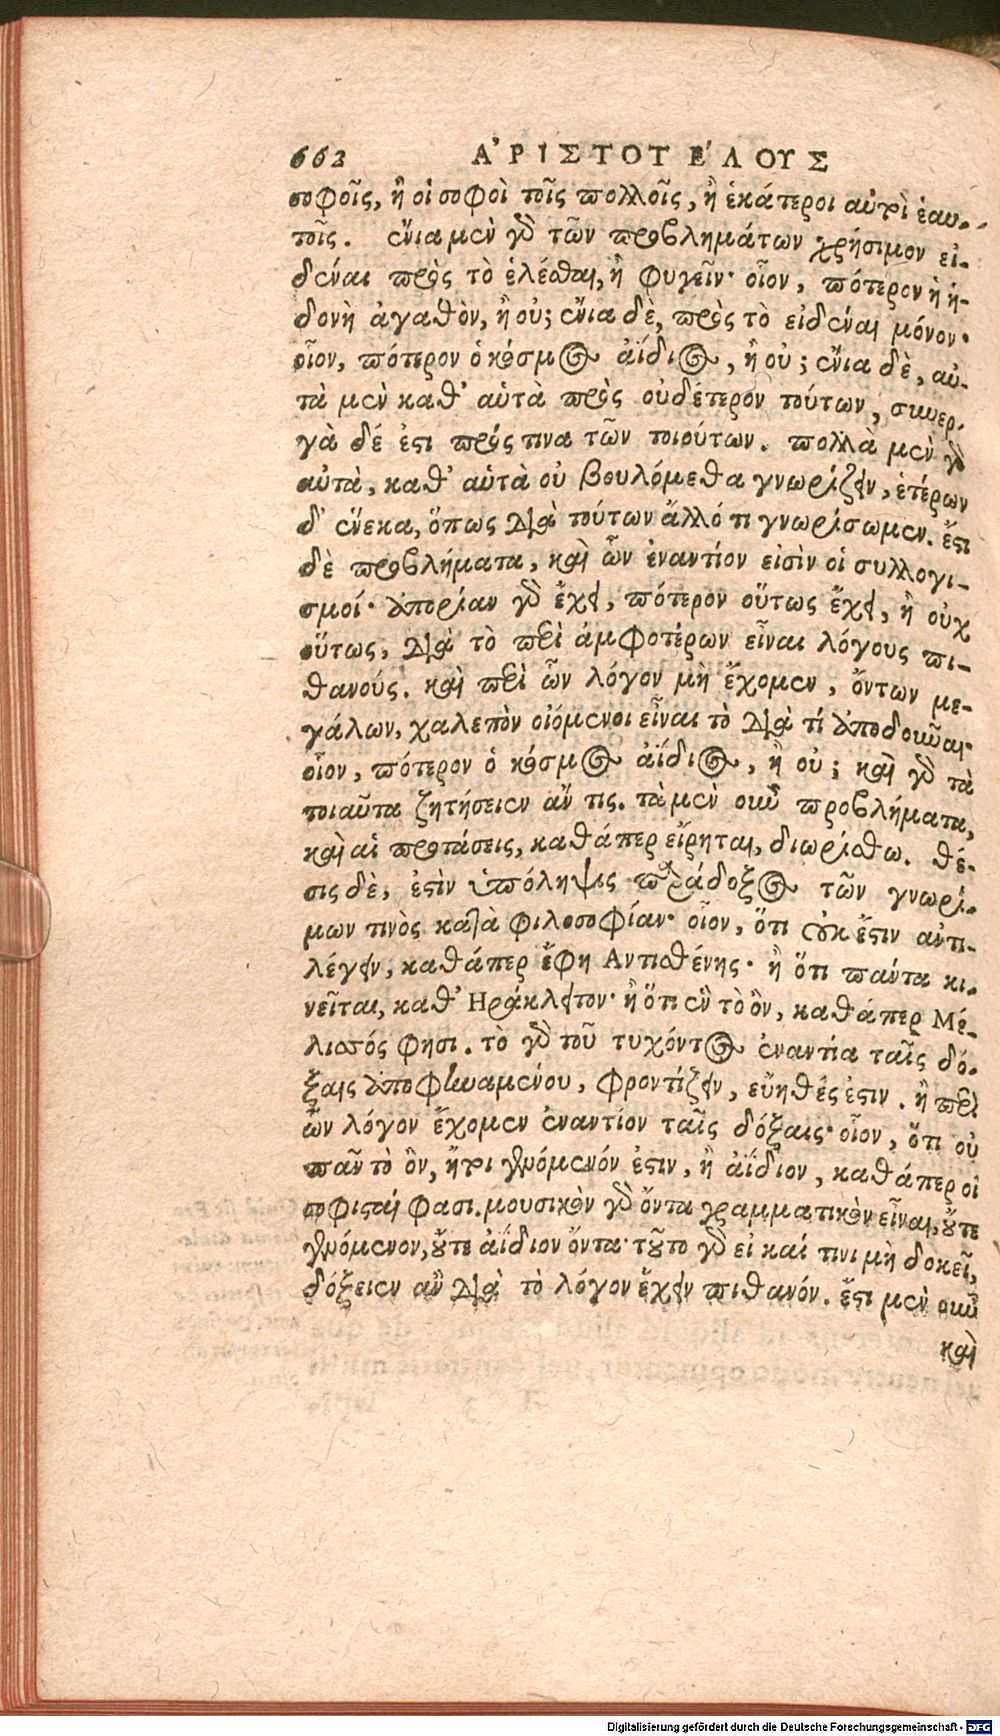 662 ΑʼΡΙΣΤΟΤΕʼΛΟΥΣ
σοφοῖς, ἢ οἱ σοφοὶ τοῖς πολλοῖς, ἢ ἑκάτεροι αὐτοὶ ἑαυ-
τοῖς. ἔνια μὲν γὰρ τῶν προβλημάτων χρήσιμον εἰ-
δέναι πρὸς τὸ ἑλέσθαι, ἢ φυγεῖν· οἷον, πότερον ἡ ἡ-
δονὴ ἀγαθὸν, ἢ οὐ; ἔνια δὲ, πρὸς τὸ εἰδέναι μόνον·
οἷον, πότερον ὁ κόσμος ἀΐδιος, ἢ οὐ; ἔνια δὲ, αὐ-
τὰ μὲν καθ’ αὑτὰ πρὸς οὐδέτερον τούτων, συνερ-
γὰ δέ ἐστι πρός τινα τῶν τοιούτων. πολλὰ μὲν γὰρ
αὐτὰ, καθ’ αὑτὰ οὐ βουλόμεθα γνωρίζειν, ἑτέρων
δ’ ἕνεκα, ὅπως διὰ τούτων ἄλλό τι γνωρίσωμεν. ἔστι
δὲ προβλήματα, καὶ ὧν ἐναντίον εἰσὶν οἱ συλλογι-
σμοί· ἀπορίαν γὰρ ἔχει, πότερον οὕτως ἔχει, ἢ οὐχ
οὕτως, διὰ τὸ περὶ ἀμφοτέρων εἶναι λόγους πι-
θανούς. καὶ περὶ ὧν λόγον μὴ ἔχομεν, ὄντων με-
γάλων, χαλεπὸν οἰόμενοι εἶναι τὸ διὰ τί ἀποδοῦναι·
οἷον, πότερον ὁ κόσμος ἀΐδιος, ἢ οὐ; καὶ γὰρ τὰ
τοιαῦτα ζητήσειεν ἄν τις. τὰ μὲν οὖν προβλήματα,
καὶ αἱ προτάσεις, καθάπερ εἴρηται, διωρίσθω. θέ-
σις δὲ, ἐστὶν ὑπόληψις παράδοξος τῶν γνωρί-
μων τινὸς κατὰ φιλοσοφίαν· οἷον, ὅτι οὐκ ἔστιν ἀντι-
λέγειν, καθάπερ ἔφη Αντισθένης· ἢ ὅτι πάντα κι-
νεῖται, καθ’ Ηράκλειτον· ἢ ὅτι ἓν τὸ ὂν, καθάπερ Μέ-
λισσός φησι. τὸ γὰρ τοῦ τυχόντος ἐναντία ταῖς δό-
ξαις ἀποφηναμένου, φροντίζειν, εὔηθές ἐστιν. ἢ περὶ
ὧν λόγον ἔχομεν ἐναντίον ταῖς δόξαις· οἷον, ὅτι οὐ
πᾶν τὸ ὂν, ἤτοι γενόμενόν ἐστιν, ἢ ἀΐδιον, καθάπερ οἱ
σοφισταί φασι. μουσικὸν γὰρ ὄντα γραμματικὸν εἶναι, οὔτε
γενόμενον, οὔτε ἀΐδιον ὄντα· τοῦτο γὰρ εἰ καί τινι μὴ δοκεῖ,
δόξειεν ἂν διὰ τὸ λόγον ἔχειν πιθανόν. ἔστι μὲν οὖν
καὶ
Digitalisierung gefördert durch die Deutsche Forschungsgemeinschaft - DFG